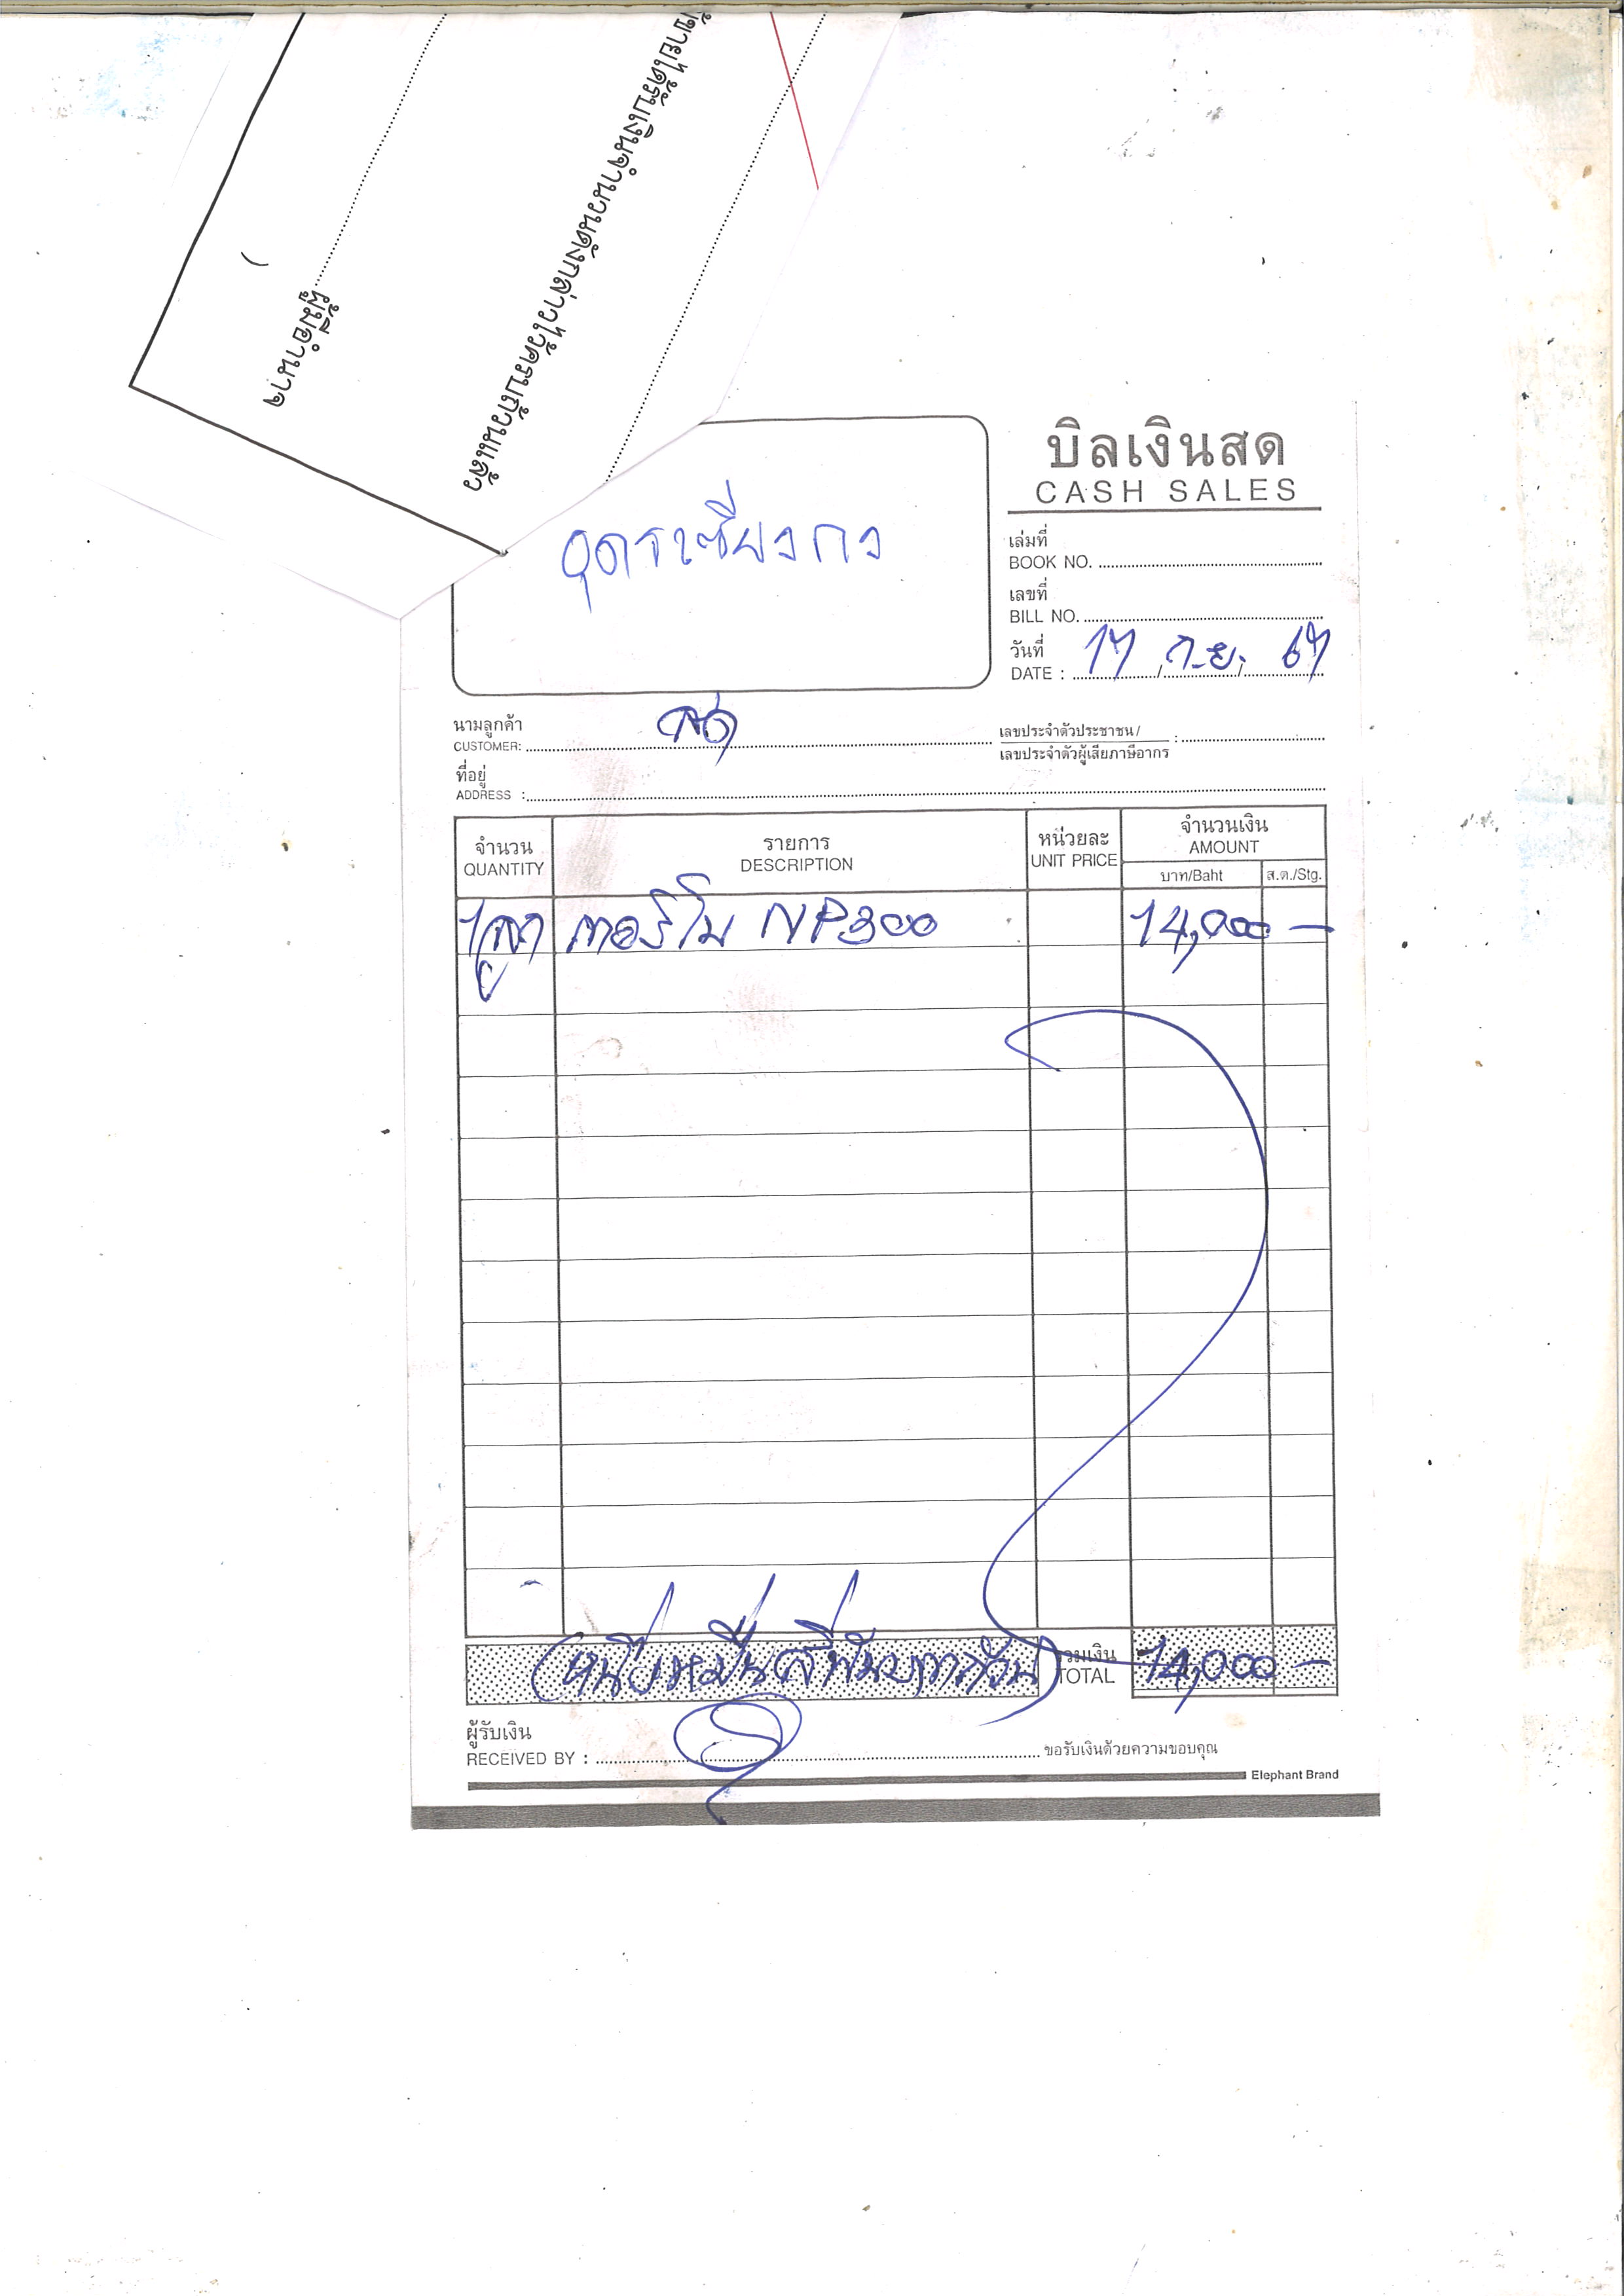 ผู้ขายได้รับเงินจำนวนดังกล่าวไว้ครบถ้วนแล้ว
ผู้มีอำนาจ
)
บิลเงินสด
CASH SALES
อุดรเซียงกง
เล่มที่
BOOK NO.
เลขที่
BILL NO.
วันที่
DATE : 17 / ก.ย. / 67
นามลูกค้า
CUSTOMER: สด
เลขประจำตัวประชาชน/
เลขประจำตัวผู้เสียภาษีอากร :
ที่อยู่
ADDRESS :
จำนวน รายการ หน่วยละ จำนวนเงิน
QUANTITY DESCRIPTION UNIT PRICE AMOUNT
บาท/Baht ส.ต./Stg.
1ลูก เทอร์โบ NP300 14,000 -
(หนึ่งหมื่นสี่พันบาทถ้วน) รวมเงิน
TOTAL 14,000 -
ผู้รับเงิน
RECEIVED BY : ขอรับเงินด้วยความขอบคุณ
Elephant Brand